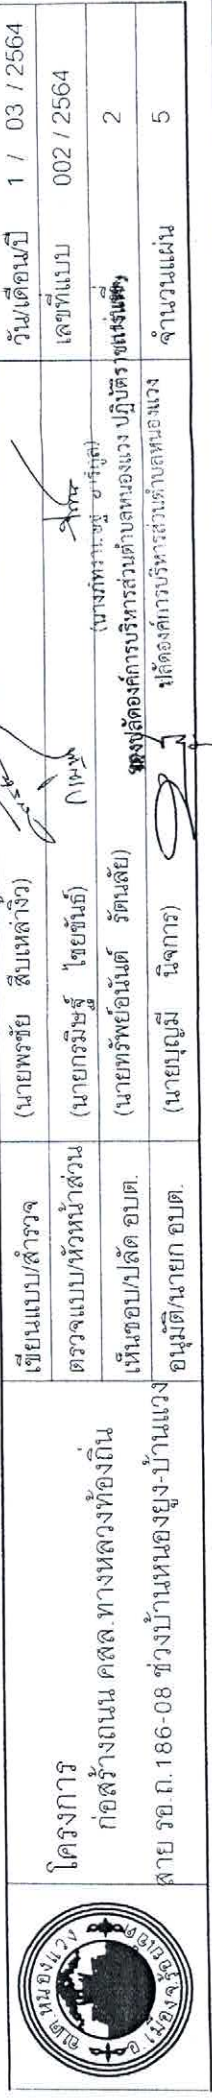 อบต.หนองแวง
โครงการ
ก่อสร้างถนน คสล.ทางหลวงท้องถิ่น
สาย รอ.ถ.186-08 ช่วงบ้านหนองยูง-บ้านแวง
เขียนแบบ/สำรวจ (นายพรชัย สืบเหล่างิ้ว) วัน/เดือน/ปี 1 / 03 / 2564
ตรวจแบบ/หัวหน้าส่วน (นายกรมิษฐ์ ไชยขันธ์) เลขที่แบบ 002 / 2564
เห็นชอบ/ปลัด อบต. (นายทรัพย์อนันต์ รัตนลัย) 2
รองปลัดองค์การบริหารส่วนตำบลหนองแวง ปฏิบัติราชการแทน
อนุมัติ/นายก อบต. (นายบุญมี นิจการ) จำนวนแผ่น 5
ปลัดองค์การบริหารส่วนตำบลหนองแวง